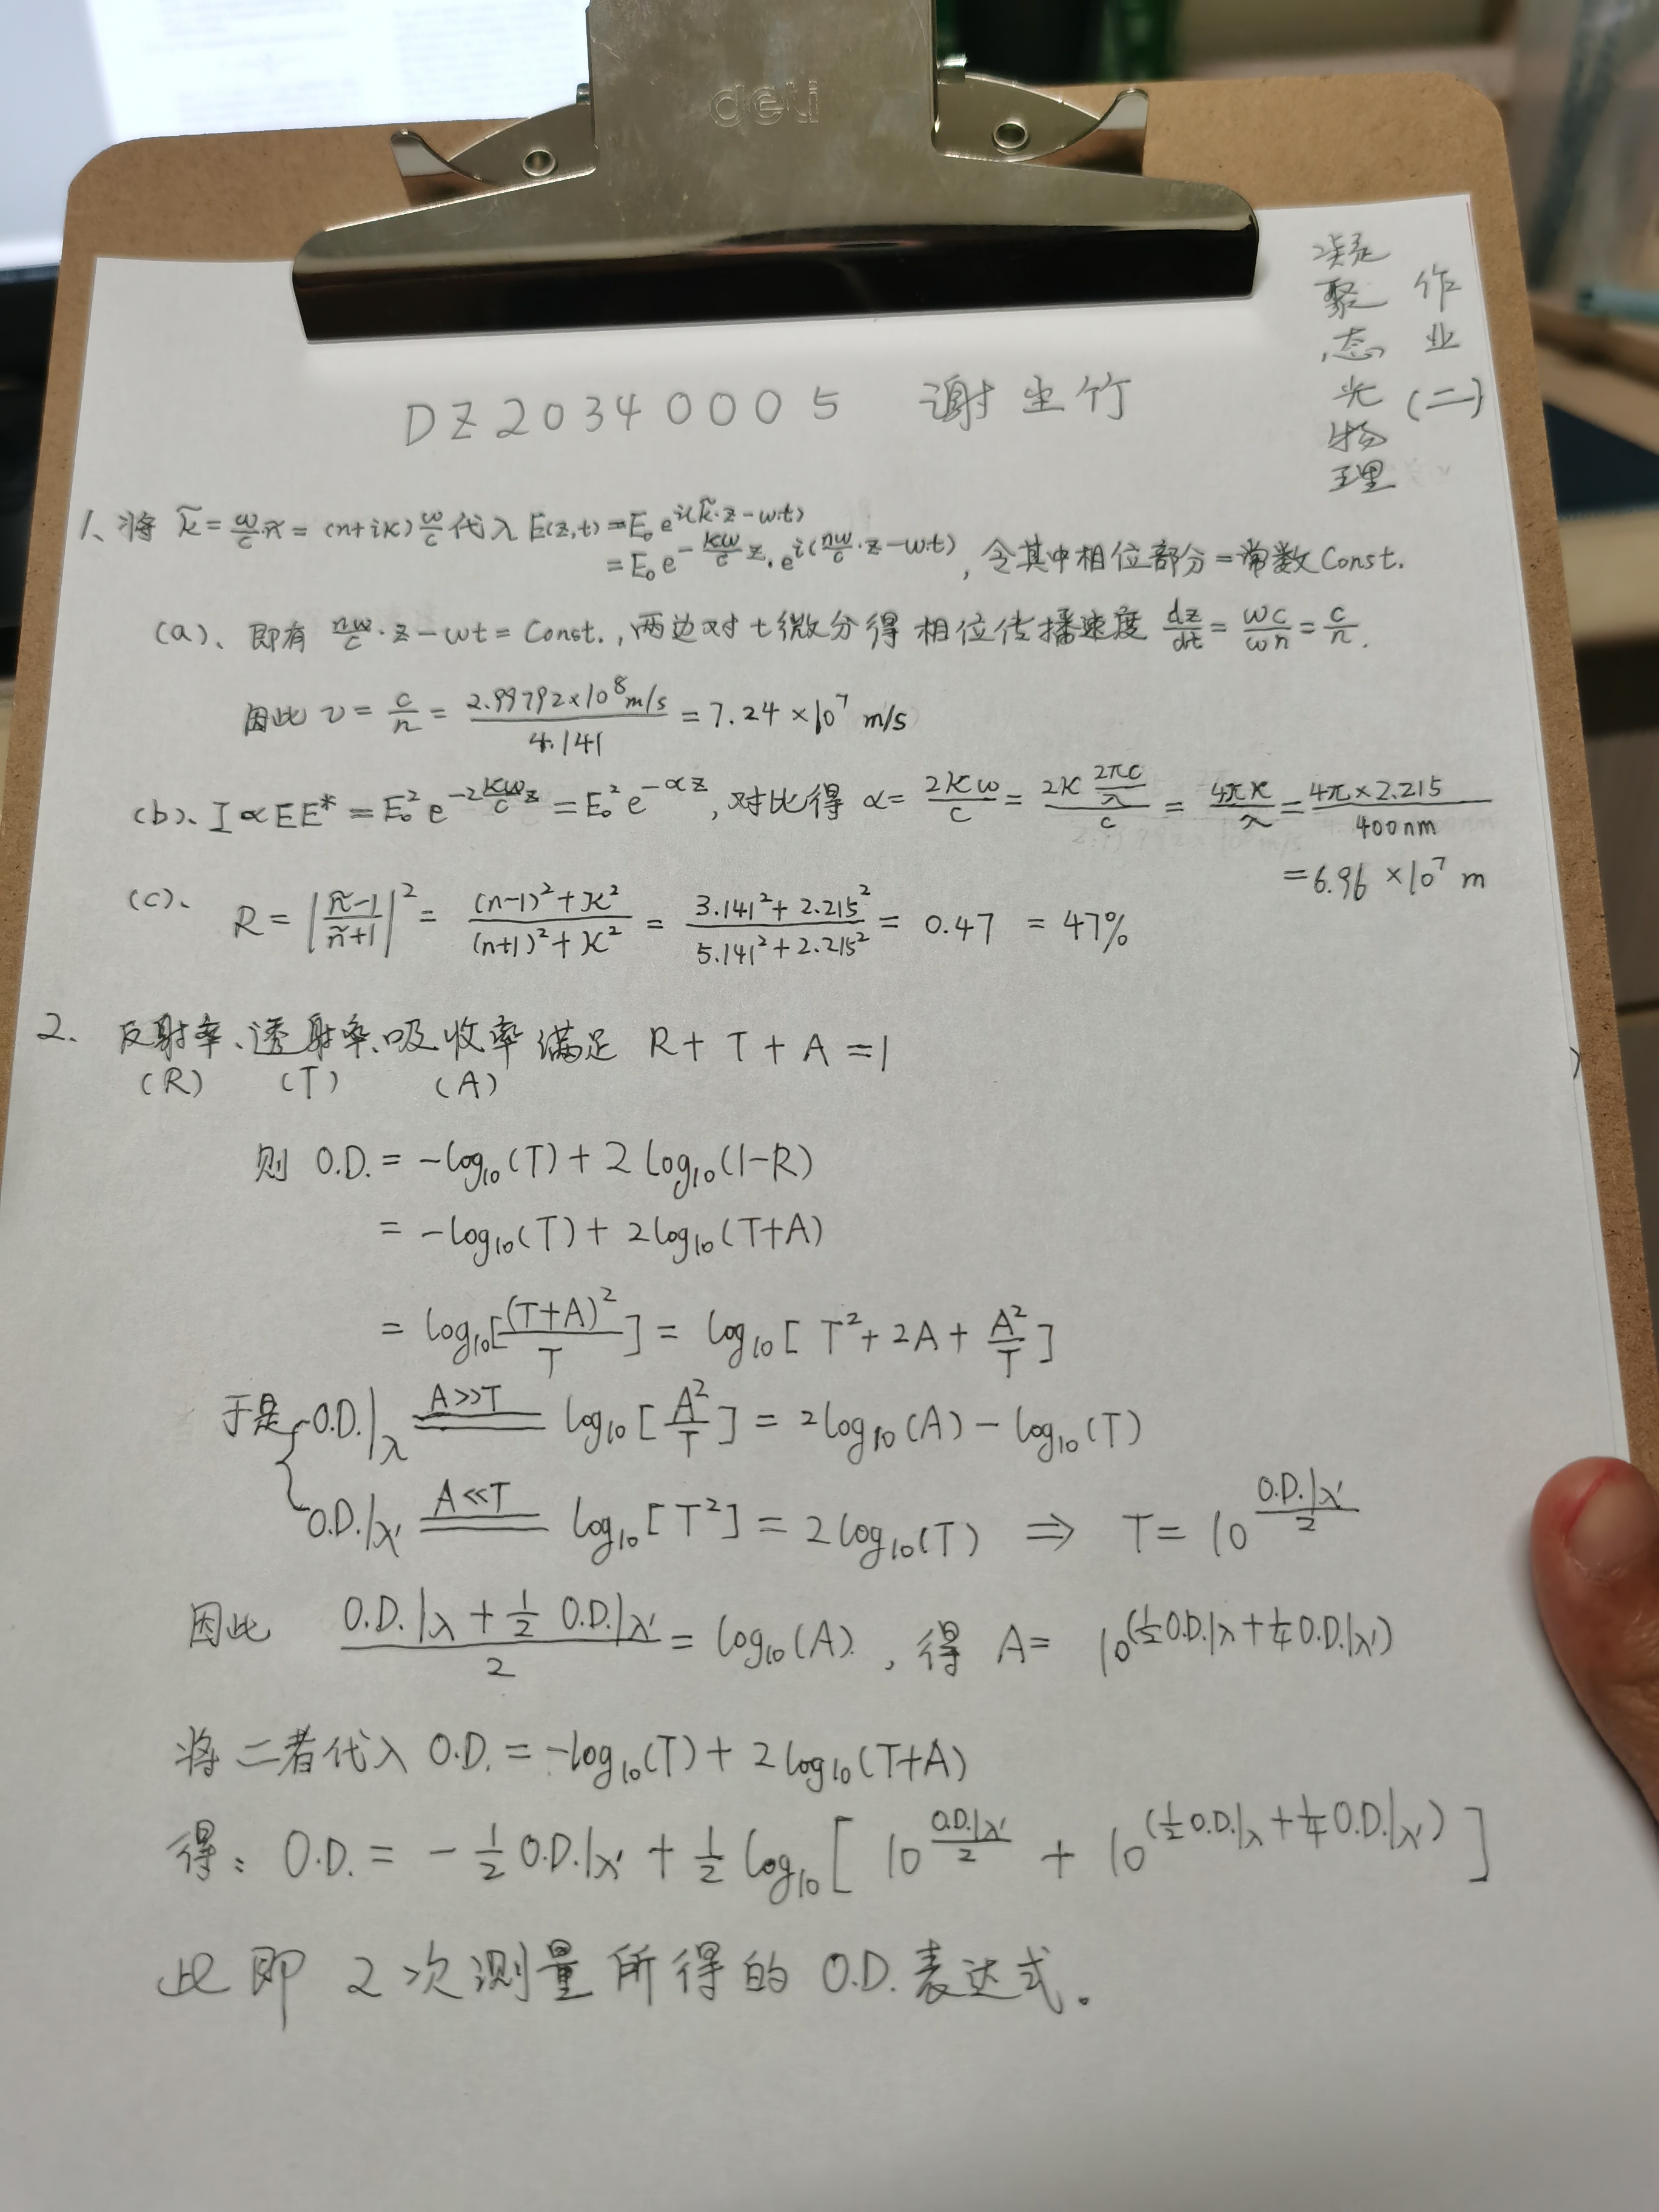 deli
凝聚态光物理
作业(二)
DZ20340005 谢尘竹
1、将 k̃ = ω/c·ñ = (n+iκ) ω/c 代入 E(z,t) = E₀ e^{i(k̃·z-ωt)}
= E₀ e^{-κω/c z}· e^{i(nω/c·z-ωt)}, 令其中相位部分=常数Const.
(a)、即有 nω/c·z-ωt = Const., 两边对t微分得相位传播速度 dz/dt = ωc/ωn = c/n.
因此 v = c/n = 2.99792×10⁸m/s / 4.141 = 7.24×10⁷ m/s
(b)、I∝EE* = E₀² e^{-2κω/c z} = E₀² e^{-αz}, 对比得 α = 2κω/c = 2κ (2πc/λ)/c = 4πκ/λ = 4π×2.215/400nm
= 6.96×10⁷ m
(c)、R = |ñ-1/ñ+1|² = (n-1)²+κ²/(n+1)²+κ² = 3.141²+2.215²/5.141²+2.215² = 0.47 = 47%
2、反射率、透射率、吸收率满足 R+T+A=1
(R) (T) (A)
则 O.D. = -log₁₀(T) + 2log₁₀(1-R)
= -log₁₀(T) + 2log₁₀(T+A)
= log₁₀[(T+A)²/T] = log₁₀[T²+2A+A²/T]
于是 O.D.|λ A>>T log₁₀[A²/T] = 2log₁₀(A) - log₁₀(T)
O.D.|λ' A≪T log₁₀[T²] = 2log₁₀(T) ⇒ T = 10^{O.D.|λ'/2}
因此 O.D.|λ + 1/2 O.D.|λ' / 2 = log₁₀(A). , 得 A = 10^{(1/2 O.D.|λ + 1/4 O.D.|λ')}
将二者代入 O.D. = -log₁₀(T) + 2log₁₀(T+A)
得: O.D. = -1/2 O.D.|λ' + 1/2 log₁₀[10^{O.D.|λ'/2} + 10^{(1/2 O.D.|λ + 1/4 O.D.|λ')}]
此即2次测量所得的O.D.表达式。